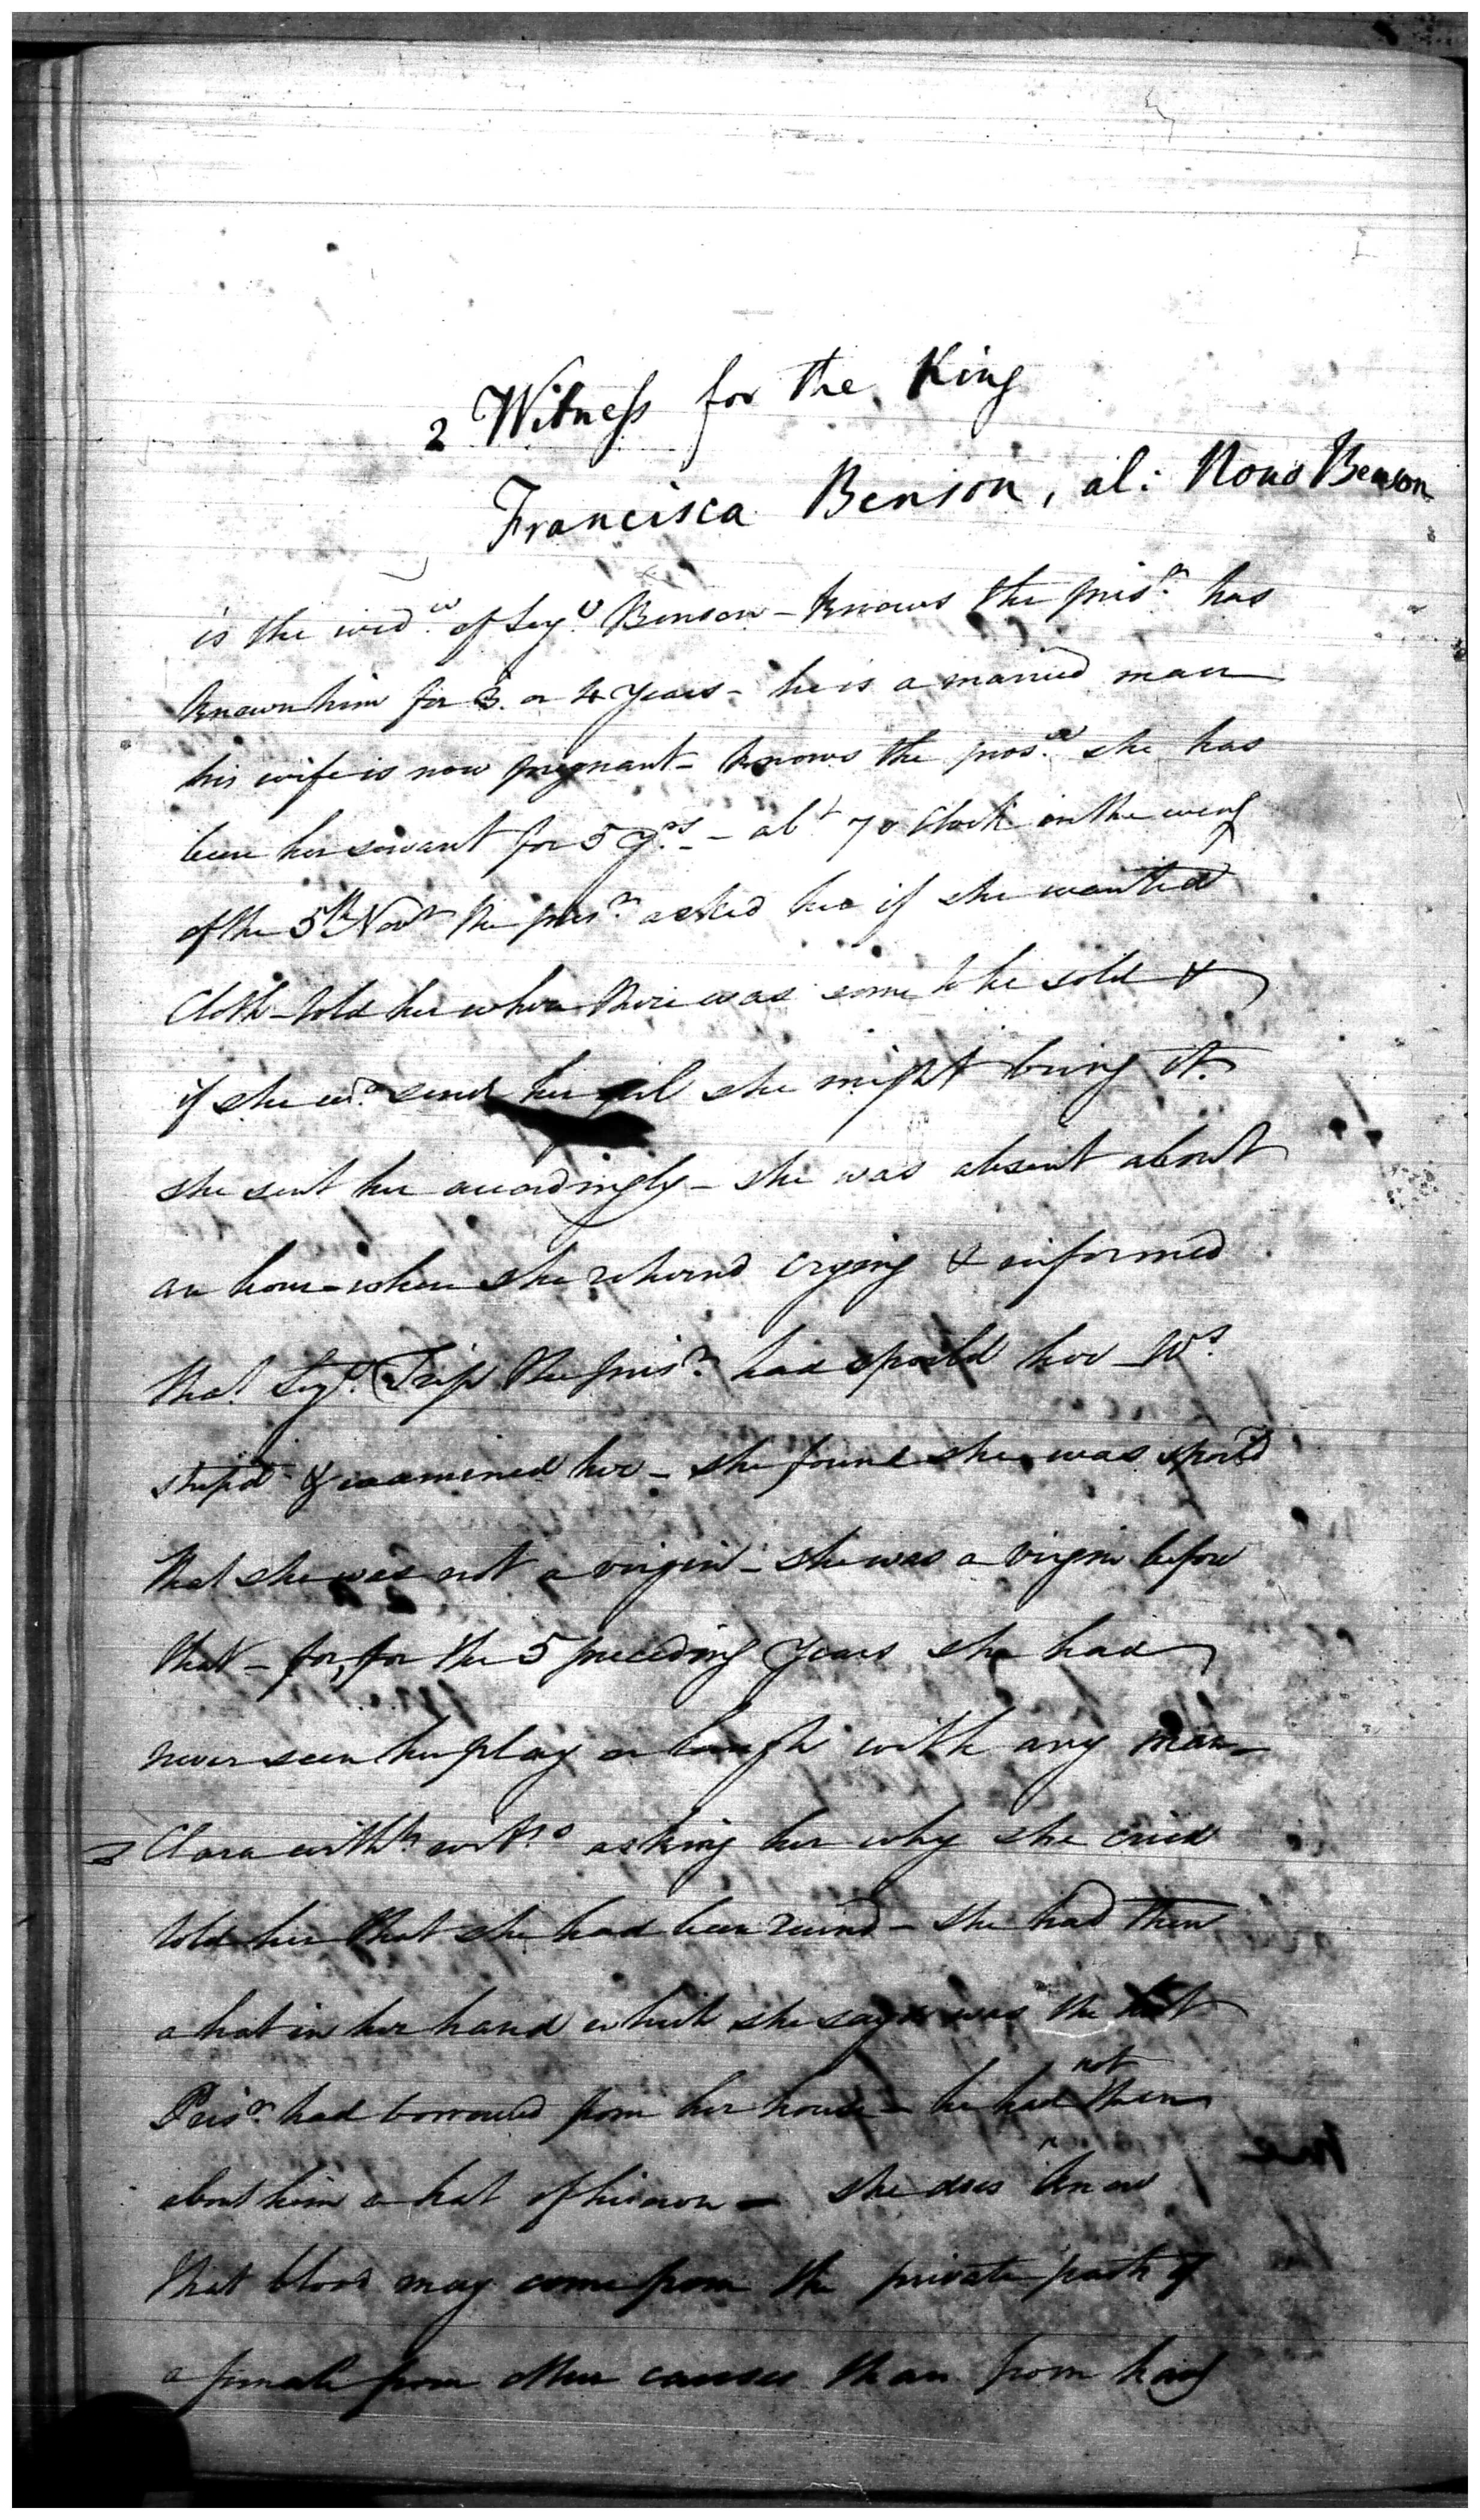 2 Witness for the King
Francisca Benson, al: Nono Benson
is the wid.w of Sey.d Benson - knows the pris.r has
known him for 3. or 4 years - he is a married man
his wife is now pregnant - knows the pros.x she has
been her servant for 5 y.rs - ab.t 7 o Clock in the eveng
of the 5th Nov.r the pris.r asked her if she wanted
Cloth - told her where there was some to be sold &
if she wd. send her girl she might bring it.
she sent her accordingly - she was absent about
an hour - when she returnd crying & informed
that Sey.d the pris.r had spoild her - W.s
stripd & examined her - she found she was spoild
that she was not a virgin - she was a virgin before
that - for, for the 5 preceding years she had
never seen her play or laugh with any man -
Clara asking her why she cried
told her that she had been ruind - she had then
a hat in her hand which she says was the hat
Pris.r had borrowed from her house - he had not then
about him a hat of his own - she does know
that blood may come from the private parts of
a female from other causes than from havg